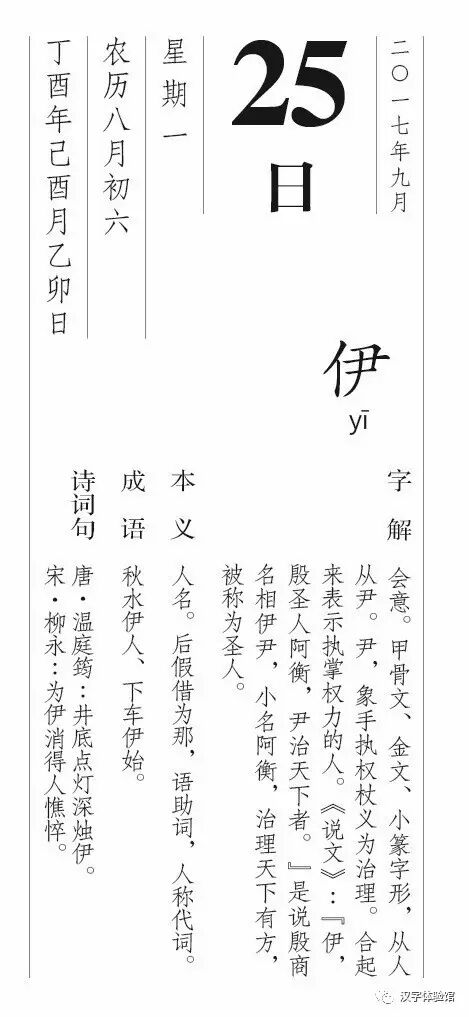 二〇一七年九月
25
日
星期一
农历八月初六
丁酉年己酉月乙卯日
伊
yī
字解
会意。甲骨文、金文、小篆字形，从人
从尹。尹，象手执权杖义为治理。合起
来表示执掌权力的人。《说文》：『伊，
殷圣人阿衡，尹治天下者。』是说殷商
名相伊尹，小名阿衡，治理天下有方，
被称为圣人。
本义
人名。后假借为那，语助词，人称代词。
成语
秋水伊人、下车伊始。
诗词句
唐·温庭筠：井底点灯深烛伊。
宋·柳永：为伊消得人憔悴。
汉字体验馆